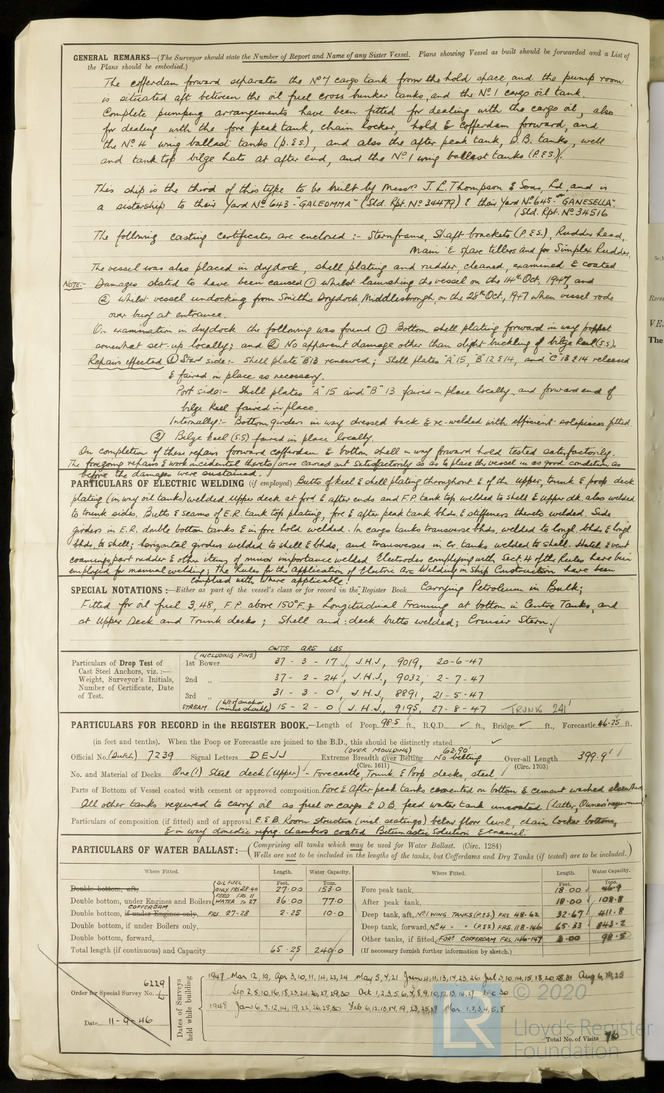 GENERAL REMARKS—(The Surveyor should state the Number of Report and Name of any Sister Vessel. Plans showing Vessel as built should be forwarded and a List of
the Plans should be embodied.)
The cofferdam forward separates the No 7 cargo tank from the hold space and the pump room
is situated aft between the oil fuel cross bunker tanks, and the No 1 cargo oil tank.
Complete pumping arrangements have been fitted for dealing with the cargo oil, also
for dealing with the fore peak tank, chain locker, hold & cofferdam forward, and
the No 4 wing ballast tanks (P.&S.), and also the after peak tank, D.B. tanks, well
and tank top bilge hats at after end, and the No 1 wing ballast tanks (P.&S.).
This ship is the third of this type to be built by Messrs J. L. Thompson & Sons, Ltd, and is
a sistership to their Yard No 643 - "GALEOMMA" (Sld. Rpt. No 34479) & their Yard No 645 - "GANESELLA"
(Sld. Rpt. No 34516
The following casting certificates are enclosed :- Sternframe, Shaft brackets (P.&S.), Rudder Head,
Main & spare tillers and for Simplex Rudder.
The vessel was also placed in drydock, shell plating and rudder, cleaned, examined & coated
NOTE:- Damages stated to have been caused ① Whilst launching the vessel on the 14th Oct, 1947, and
② Whilst vessel undocking from Smiths Drydock, Middlesbrough, on the 28th Oct, 1947 when vessel rode
over buoy at entrance.
On examination in drydock the following was found ① Bottom shell plating forward in way poppet
somewhat set up locally; and ② No apparent damage other than slight buckling of bilge keel (S.S).
Repairs effected ① Stard side:- Shell plate "B"13 renewed; Shell plates "A"15, "B"12 & 14, and "C"13 & 14 released
& faired in place as necessary.
Port side:- Shell plates "A"15 and "B"13 faired in place locally, and forward end of
bilge keel faired in place.
Internally:- Bottom girders in way dressed back & re-welded with efficient fitted
② Bilge keel (S.S) faired in place locally.
On completion of these repairs forward cofferdam & bottom shell in way forward hold tested satisfactorily.
The foregoing repairs & work incidental thereto were carried out satisfactorily so as to place the vessel in as good condition as
before the damages were sustained.
PARTICULARS OF ELECTRIC WELDING (if employed) Butts of keel & shell plating throughout & of the upper, trunk & poop deck
plating (in way oil tanks) welded, upper deck at ford & after ends and F.P. tank top welded to shell & upper dk. also welded
to trunk sides. Butts & seams of E.R. tank top plating, fore & after peak tank bhds. & stiffeners thereto welded. Side
girders in E.R. double bottom tanks & in fore hold welded. In cargo tanks transverse bhds. welded to longl bhds & longl
bhds. to shell; horizontal girders welded to shell & bhds, and transverses in cr. tanks welded to shell. Hatch & vent
coamings, part rudder & other items of minor importance welded. Electrodes complying with Sect 4 of the Rules have been
employed for manual welding; the Rules for the Application of Electric Arc Welding in Ship Construction have been
complied with where applicable.
SPECIAL NOTATIONS:—Either as part of the vessel's class or for record in the Register Book Carrying Petroleum in Bulk;
Fitted for oil fuel 3,48, F.P. above 150°F. & Longitudinal Framing at bottom in Centre Tanks, and
at Upper Deck and Trunk decks; Shell and deck butts welded; Cruiser Stern.
CWTS QRS LBS
(INCLUDING PINS)
Particulars of Drop Test of
Cast Steel Anchors, viz. :—
Weight, Surveyor's Initials,
Number of Certificate, Date
of Test.
1st Bower 37 - 3 - 17, J.H.J., 9019, 20-6-47
2nd " 37 - 2 - 24, J.H.J., 9032, 2-7-47
3rd " 31 - 3 - 0, J.H.J., 8891, 21-5-47
STREAM 15 - 2 - 0, J.H.J., 9195, 27-8-47 TRUNK 241'
PARTICULARS FOR RECORD in the REGISTER BOOK.—Length of Poop 98.5 ft., R.Q.D. ✓ ft., Bridge ✓ ft., Forecastle 46.25 ft.
(in feet and tenths). When the Poop or Forecastle are joined to the B.D., this should be distinctly stated ✓
(OVER MOULDING) 62.90'
Official No. (Dutch) 7239 Signal Letters DEJJ Extreme Breadth over Belting No belting Over-all Length 399.9'
(Circ. 1611) (Circ. 1703)
No. and Material of Decks One (1) Steel deck (Upper) - Forecastle, Trunk & Poop decks steel
Parts of Bottom of Vessel coated with cement or approved composition Fore & After peak tanks cemented on bottom & cement washed elsewhere
All other tanks required to carry oil as fuel or cargo & D.B. feed water tank uncoated (latter, Owners requirement)
Particulars of composition (if fitted) and of approval E & B Room structure (incl seatings) below floor level, chain locker bottom,
& in way domestic refrig. chambers coated Bitumastic Solution & enamel.
PARTICULARS OF WATER BALLAST:— (Comprising all tanks which may be used for Water Ballast. (Circ. 1284)
Wells are not to be included in the lengths of the tanks, but Cofferdams and Dry Tanks (if tested) are to be included.)
Where Fitted. Length. Water Capacity. Where Fitted. Length. Water Capacity.
Feet. Tons. Feet. Tons.
Double bottom, aft, 27.00 153.0 Fore peak tank, 18.00 46.9
Double bottom, under Engines and Boilers 36.00 77.0 After peak tank, 18.00 108.8
COFFERDAM
Double bottom, if under Engines only, FRS. 27-28 2.25 10.0 Deep tank, aft, No 1 WING TANKS (P.&S.) FRS. 48-62 32.67 411.8
Double bottom, if under Boilers only, Deep tank, forward, No 4 " " (P.&S.) FRS. 118-146 65.33 843.2
Double bottom, forward, Other tanks, if fitted, FORD COFFERDAM FRS. 146-147 3.00 98.5
Total length (if continuous) and Capacity 65.25 240.0 (If necessary furnish further information by sketch.)
Order for Special Survey No. 6229
Date 11-9-46
Dates of Surveys
held while building
1947 Mar 12, 19, Apr 3, 10, 11, 14, 22, 24 May 5, 9, 21 June 4, 11, 13, 14, 23, 26 Jul 3, 10, 14, 15, 18, 20, 28, 31 Aug 6, 19, 25
1948
Total No. of Visits 76
© 2020
LR
Lloyd's Register
Foundation